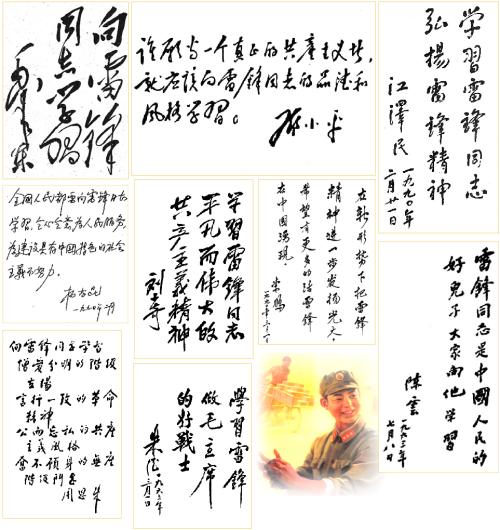 向雷锋
同志学习
毛泽东
谁愿当一个真正的共产主义者,
就应该向雷锋同志的品德和
风格学习。
邓小平
学習雷锋同志
弘揚雷锋精神
江澤民
一九九〇年
二月廿一日
全国人民都要向雷锋同志
学習,全心全意为人民服务,
为建设具有中国特色的社会
主義而努力。
杨尚昆
一九九〇年一月
学習雷锋同志
平凡而伟大的
共产主義精神
刘少奇
在新形势下把雷锋
精神进一步发扬光大,
希望有更多的活雷锋
在中国涌现。
李鹏
雷鋒同志是中国人民的
好兒子 大家向他学習
陈雲
七月八日
向雷锋同志学習
憎爱分明的階级
立場
言行一致的革命
精神
公而忘私的共產
主義风格
奋不顾身的無產
階级鬥志
周恩来
學習雷锋
做毛主席
的好战士
朱德